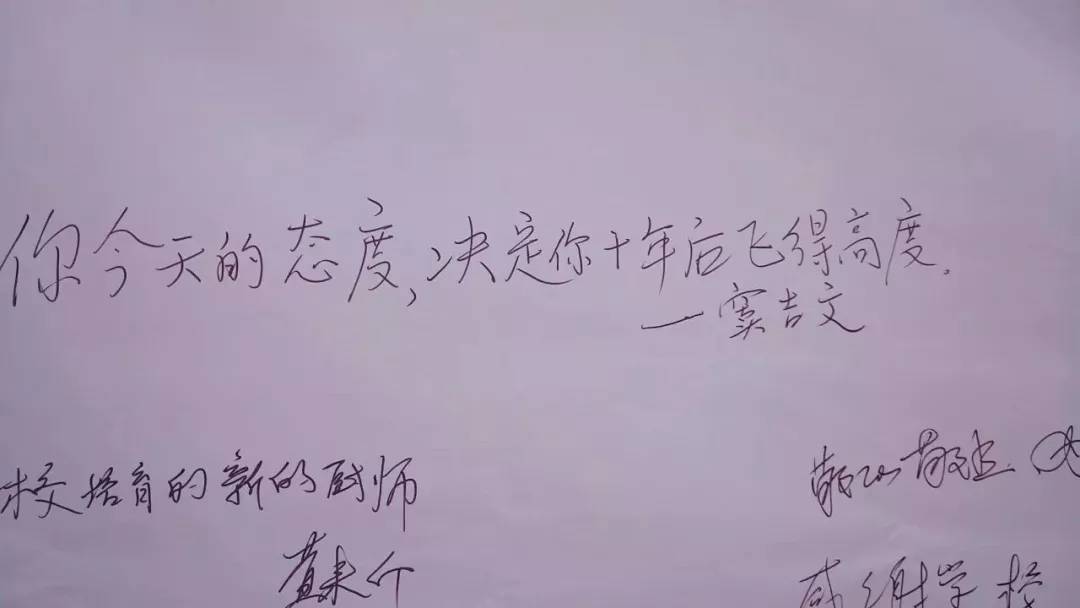 你今天的态度,决定你十年后飞得高度.
—窦吉文
校培育的新的厨师
感谢学校